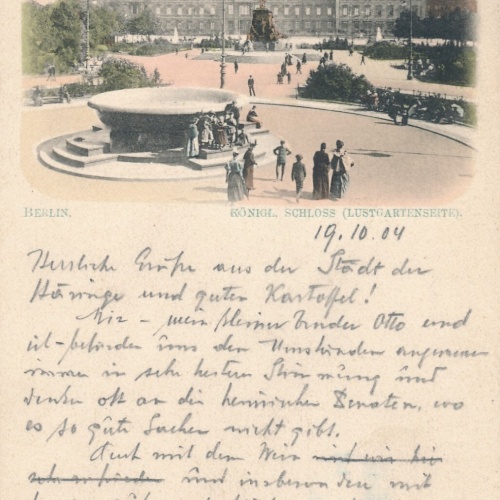 BERLIN. KÖNIGL. SCHLOSS (LUSTGARTENSEITE).
19.10.04
Herzliche Grüße aus der Stadt der
Häringe und guten Kartoffel!
Wir – mein kleiner Bruder Otto und
ich – befinden uns den Umständen angemessen
immer in sehr heiterer Stimmung und
denken oft an die heimischen Penaten, wo
es so gute Sachen nicht gibt.
Auch mit dem Wein sind wir hier
sehr zufrieden und insbesondere mit